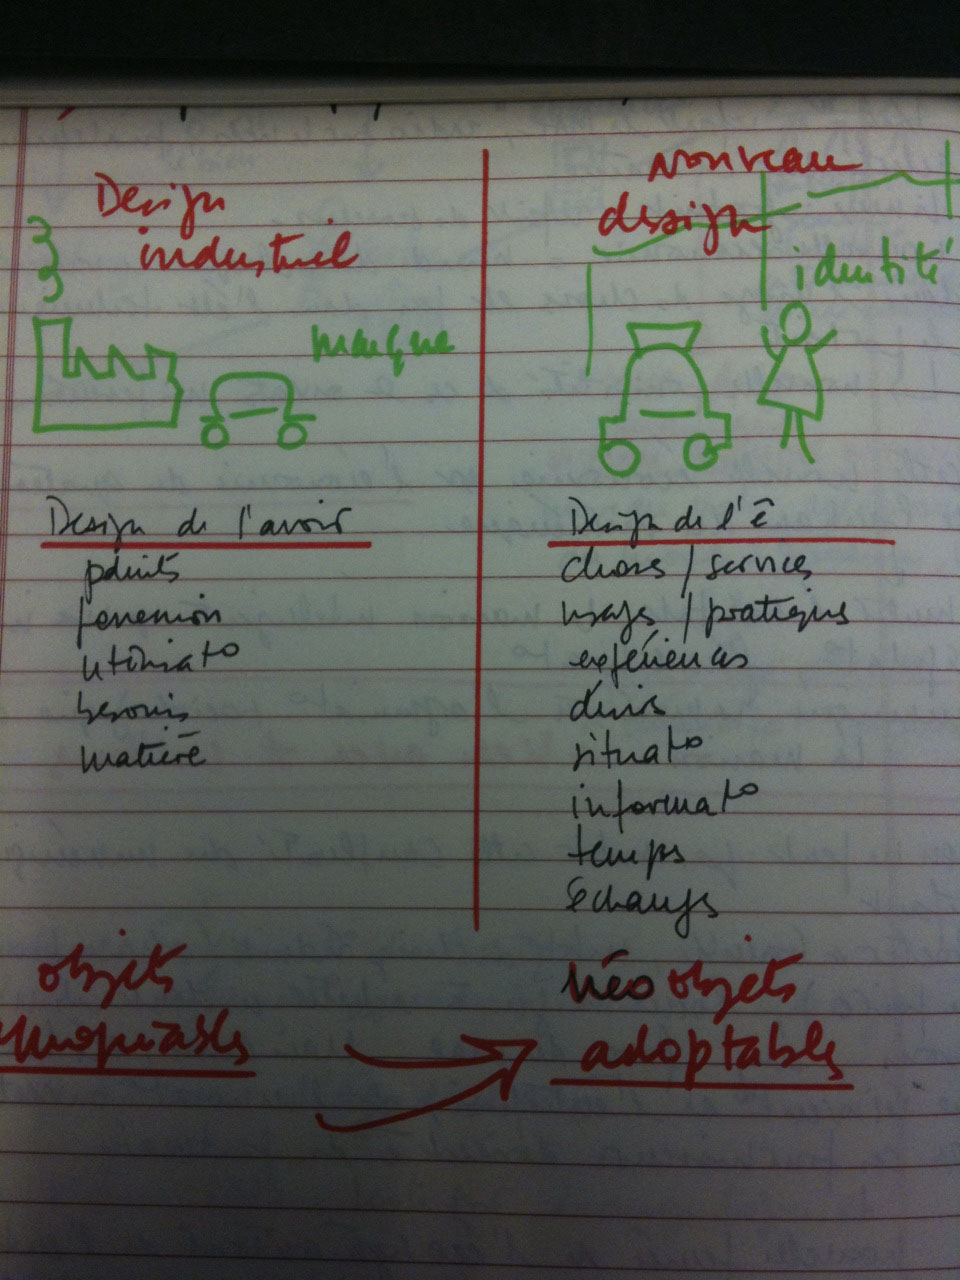 Design
industriel
marque
Design de l'avoir
possession
utilisat°
besoins
matière
objets
nouveau
design
identité
Design de l'ê
choses / services
usages / pratiques
expériences
désirs
situat°
informat°
temps
échanges
néo objets
adoptables